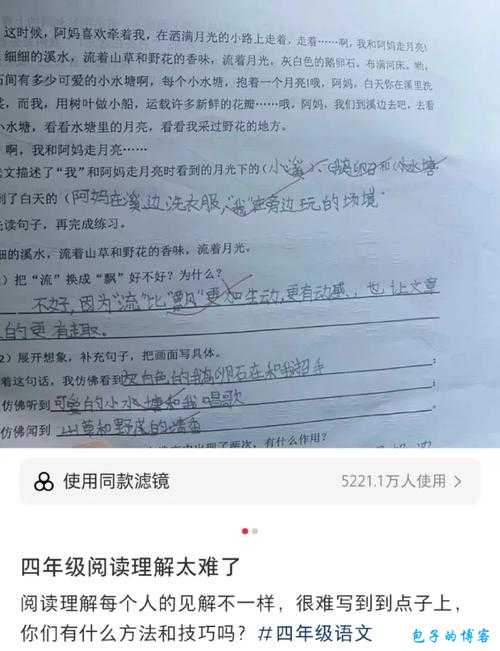 这时候，阿妈喜欢牵着我，在洒满月光的小路上走着，走着……啊，我和阿妈走月亮!
细细的溪水，流着山草和野花的香味，流着月光。灰白色的鹅卵石，布满河床。哟，
石间有多少可爱的小水塘啊，每个小水塘，抱着一个月亮!哦，阿妈，白天你在溪里洗
裳，而我，用树叶做小船，运载许多新鲜的花瓣……哦，阿妈，我们到溪边去吧，去看
小水塘，看看水塘里的月亮，看看我采过野花的地方。
啊，我和阿妈走月亮……
文描写了“我”和阿妈走月亮时看到的月光下的(小溪)、鹅卵石和小水塘
到了白天的(阿妈在溪边洗衣服，“我”在旁边玩的场境
读句子，再完成练习。
细的溪水，流着山草和野花的香味，流着月光。
)把“流”换成“飘”好不好？为什么？
不好，因为“流”比“飘”更加生动，更有动感，也让文章
的更有趣。
2）展开想象，补充句子，把画面写具体。
着这句话，我仿佛看到灰白色的鹅卵石在和我招手；
仿佛听到可爱的小水塘和我唱歌；
仿佛闻到山草和野花的清香
出现了两次，有什么作用？
使用同款滤镜 5221.1万人使用 >
四年级阅读理解太难了
阅读理解每个人的见解不一样，很难写到到点子上，
你们有什么方法和技巧吗？#四年级语文
包子的博客